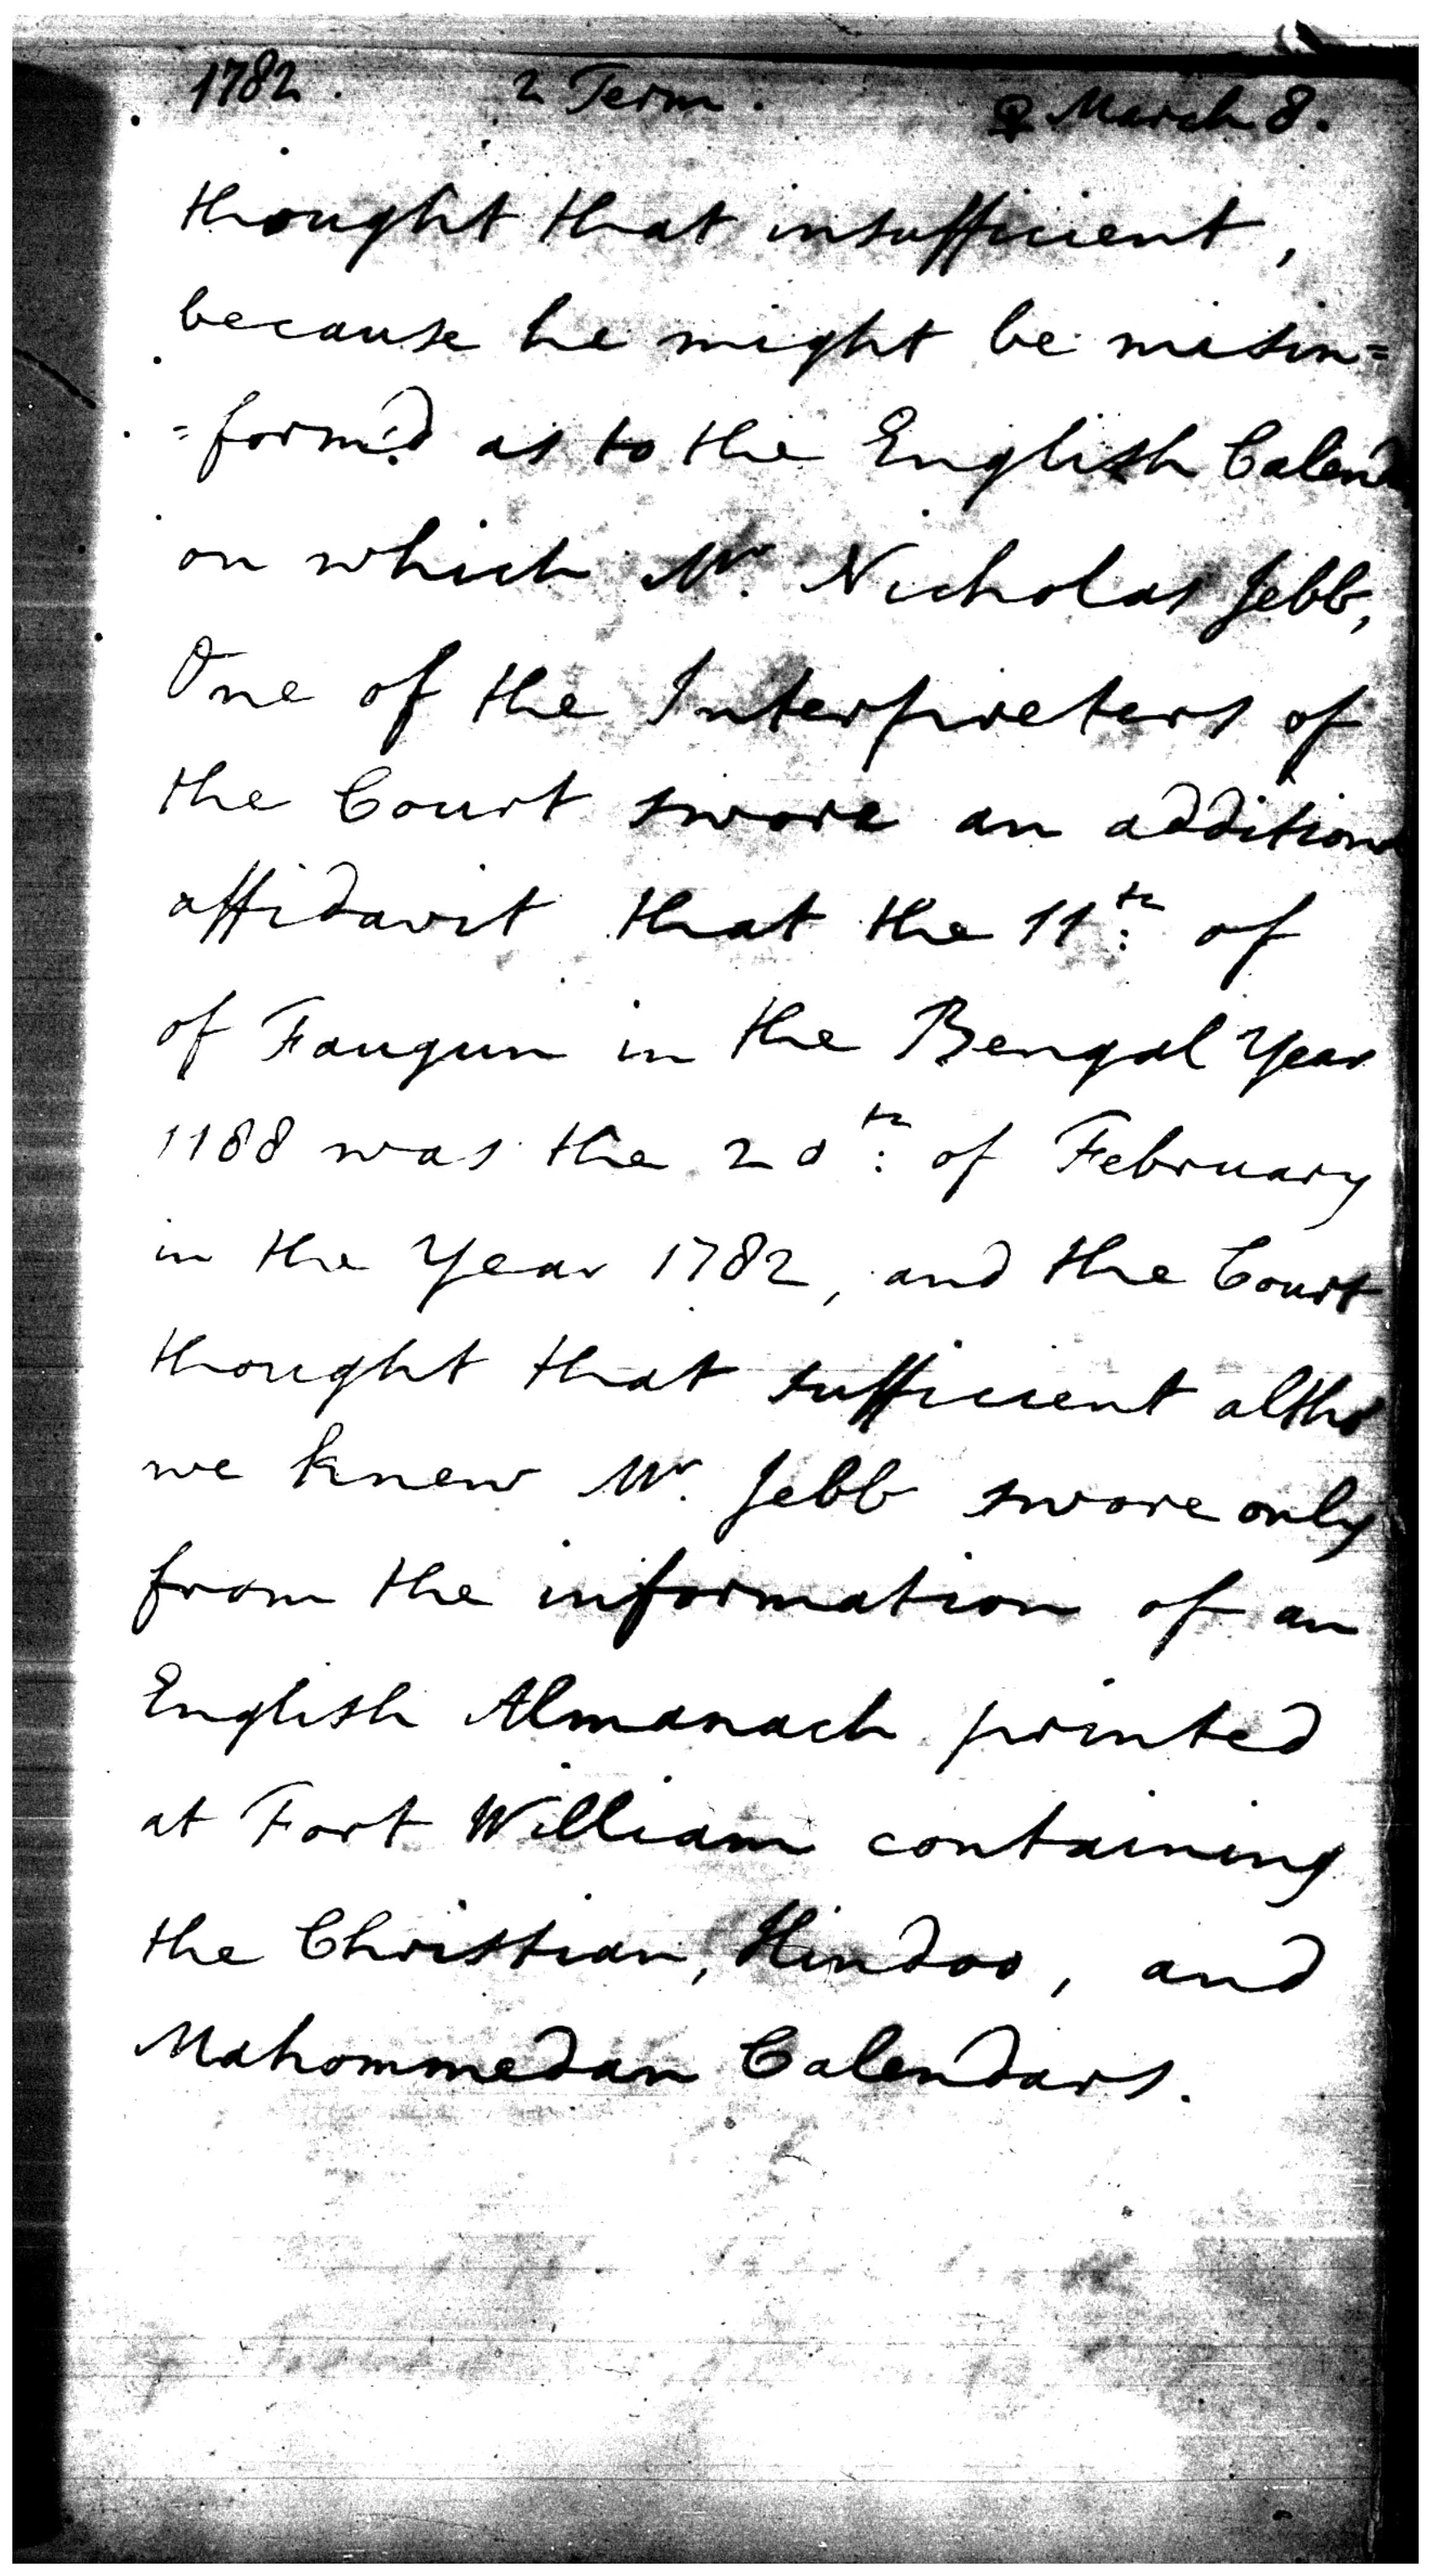 1782. 2 Term. ♀ March 8.
thought that insufficient,
because he might be misin=
=form'd as to the English Calend
on which Mr. Nicholas Jebb,
One of the Interpreters of
the Court swore an addition
affidavit that the 11th: of
of Faugun in the Bengal Year
1188 was the 20th: of February
in the Year 1782, and the Court
thought that sufficient altho
we knew Mr. Jebb swore only
from the information of an
English Almanach printed
at Fort William containing
the Christian, Hindoo, and
Mahommedan Calendars.